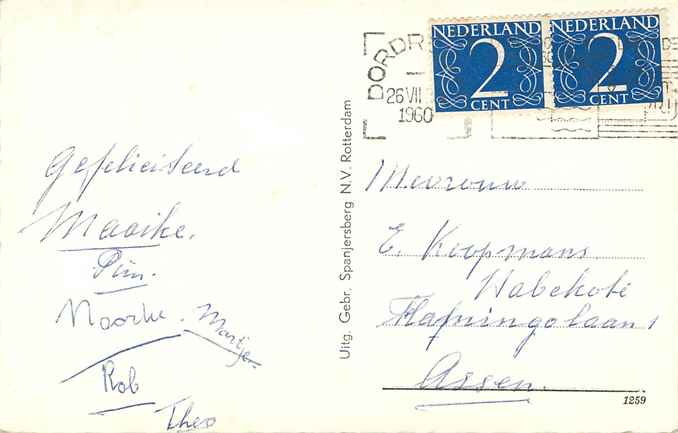 Gefeliciteerd
Maaike.
Pim.
Marije.
Rob
Theo
Uitg. Gebr. Spanjersberg N.V. Rotterdam
DORDR
26 VII
1960
NEDERLAND
2
CENT
NEDERLAND
2
CENT
Mevrouw
E. Koopmans
Flamingolaan 1
Assen.
1259